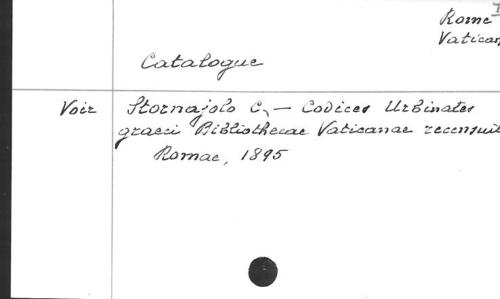 Rome
Vatican
Catalogue
Voir Stornajolo C, — Codices Urbinates
graeci Bibliothecae Vaticanae recensuit
Romae, 1895